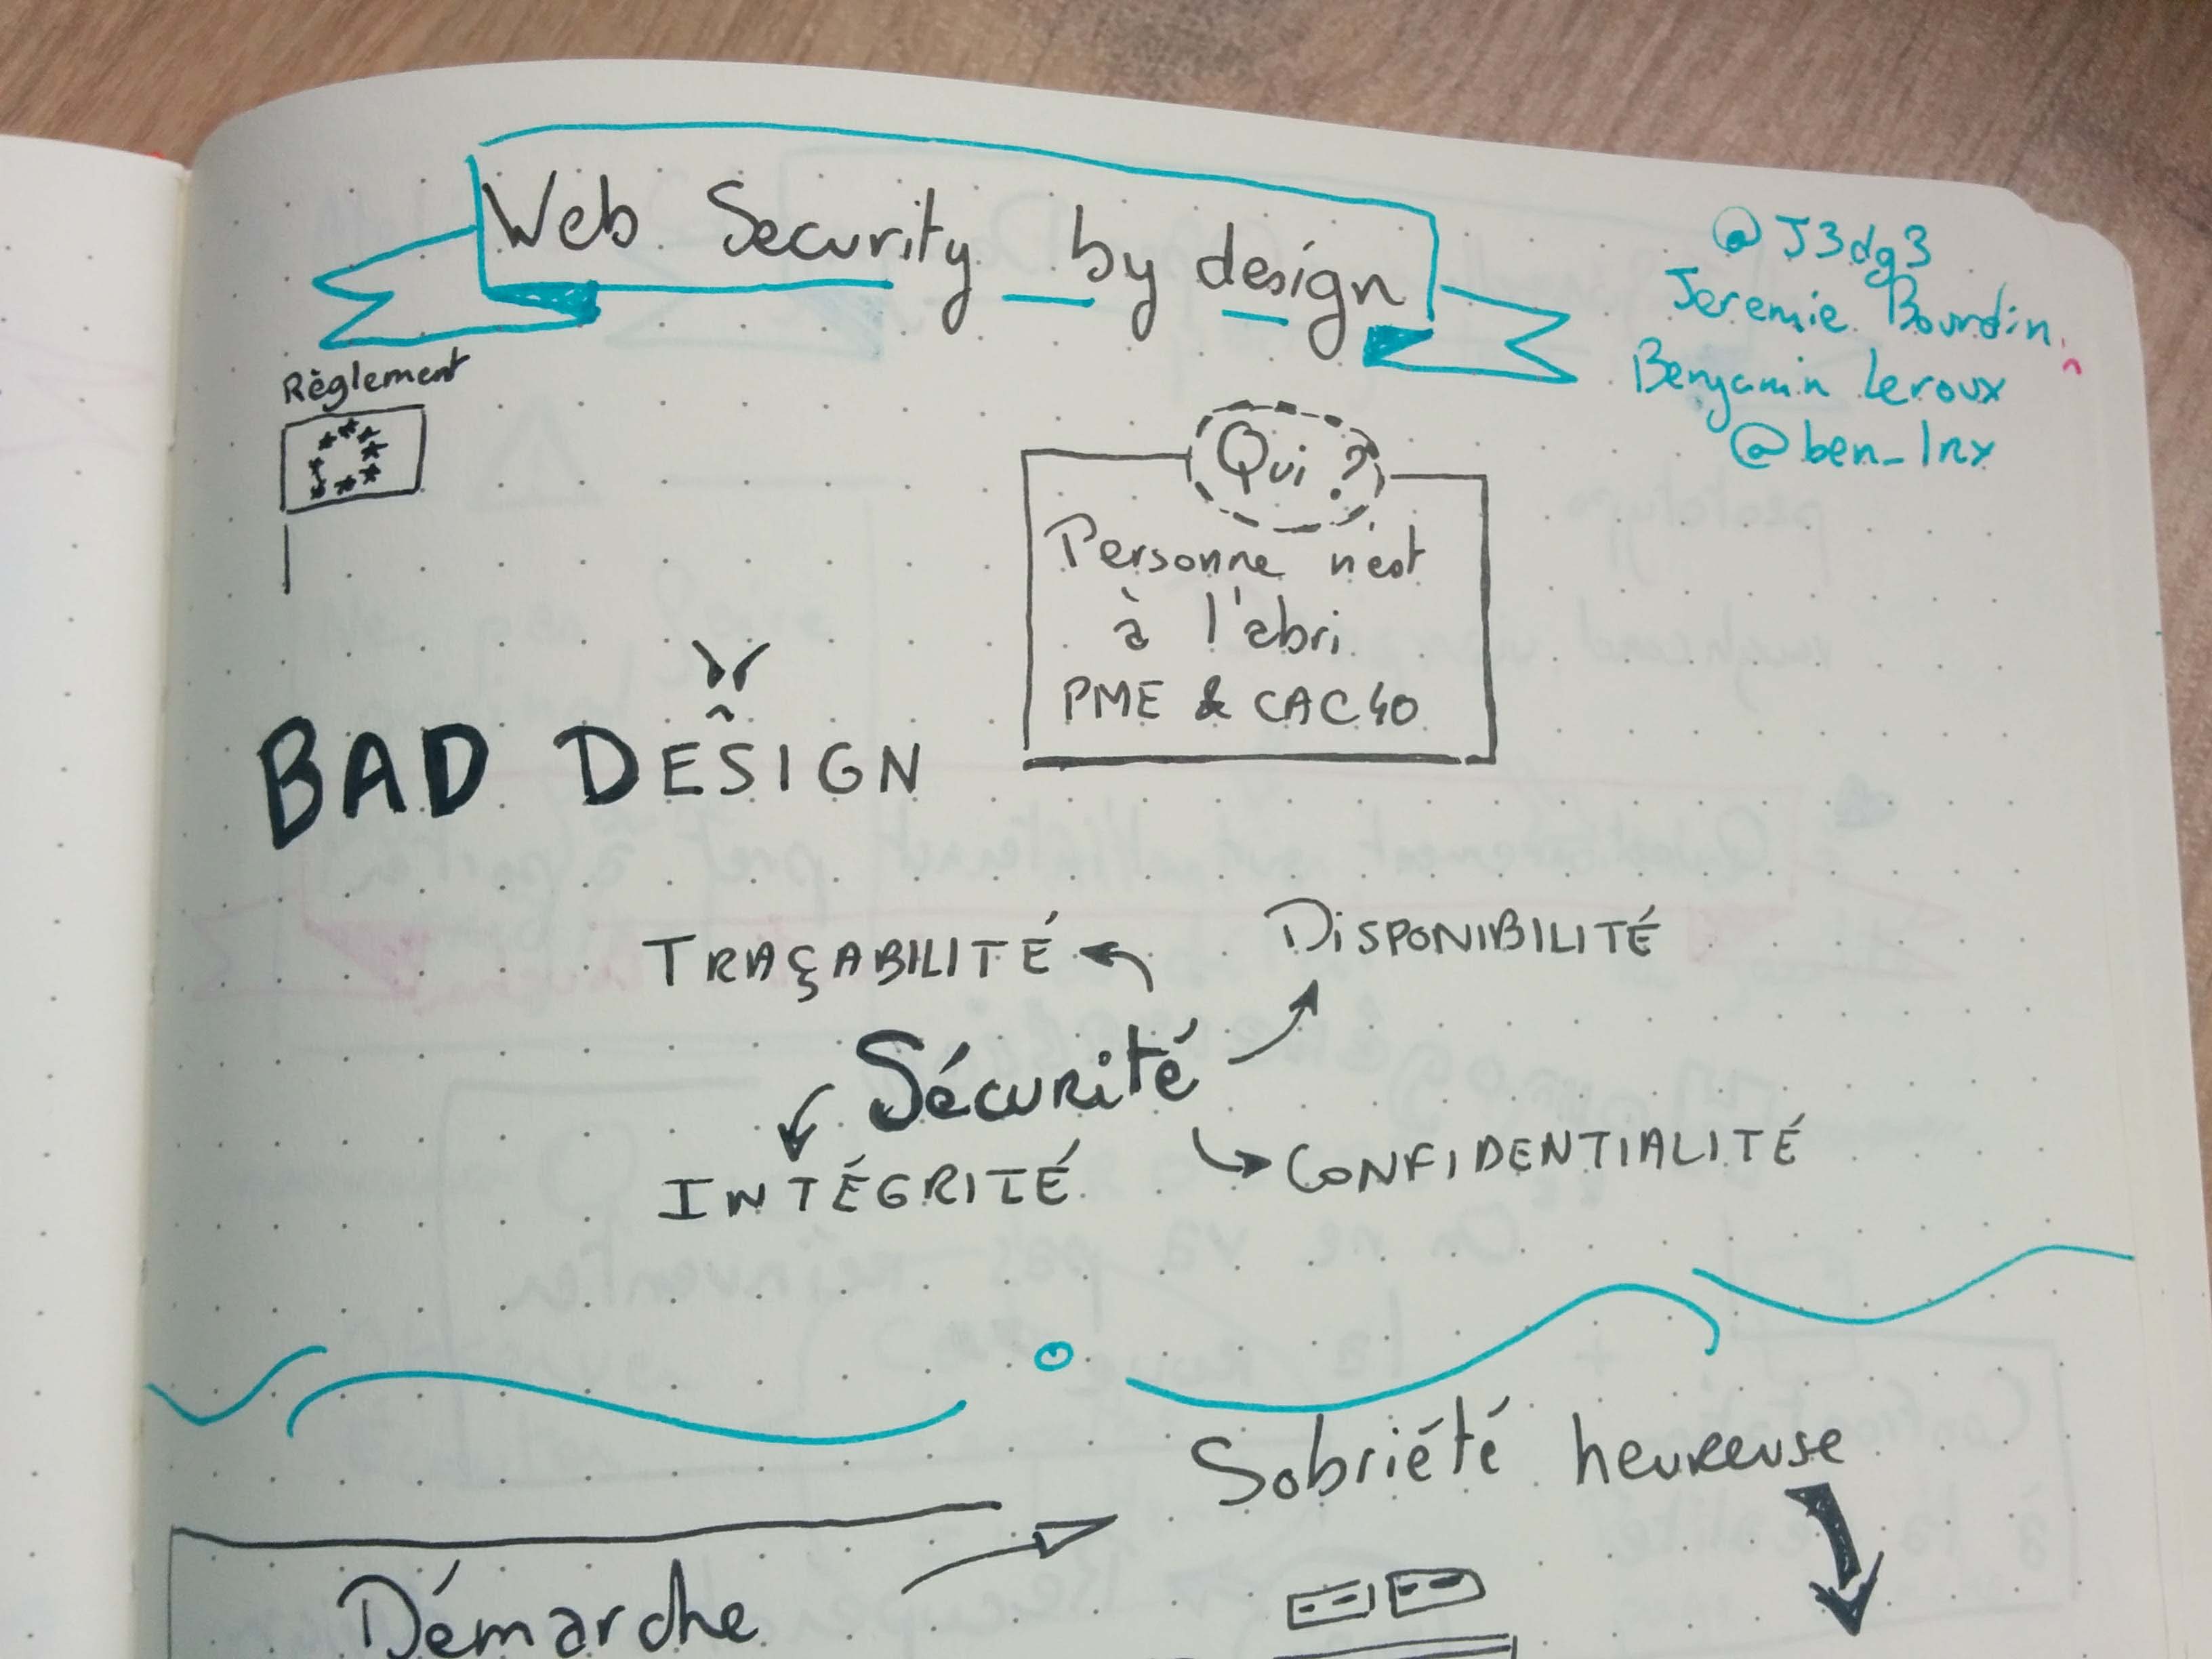 Web Security by design
@J3dg3
Jeremie Bourdin
Benjamin Leroux
@ben_lnx
Règlement
Qui ?
Personne n'est
à l'abri
PME & CAC40
BAD DESIGN
TRAÇABILITÉ
DISPONIBILITÉ
Sécurité
INTÉGRITÉ
CONFIDENTIALITÉ
Sobriété heureuse
Démarche